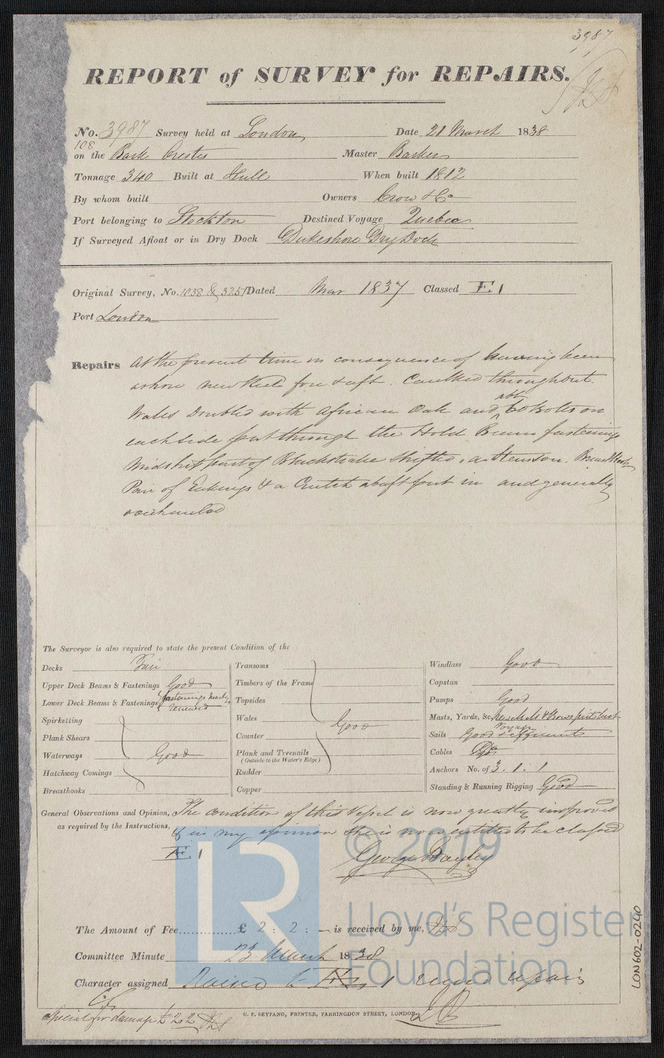 3987
REPORT of SURVEY for REPAIRS.
No. 3987 Survey held at London Date 21 March 1838
108
on the Bark Orestes Master Barker
Tonnage 340 Built at Hull When built 1812
By whom built Owners Crow & Co
Port belonging to Stockton Destined Voyage Quebec
If Surveyed Afloat or in Dry Dock Dukeshore Dry Dock
Original Survey, No. 1838 & 3251 Dated Mar 1837 Classed Æ 1
Port London
Repairs At the present time in consequence of having been
ashore new Keel fore & aft. Caulked throughout.
Wales doubled with African Oak and abt Bolts on
each side put through the Hold Beam fastenings
Midship part of Blackstrake Shifted, a Stemson. Breasthook
Pair of and a Crutch abaft put in and generally
overhauled
The Surveyor is also required to state the present Condition of the
Decks Fair
Upper Deck Beams & Fastenings Good
Lower Deck Beams & Fastenings fastenings newly
Spirketting
Plank Shears
Waterways Good
Hatchway Comings
Breasthooks
Transoms
Timbers of the Frame
Topsides
Wales Good
Counter
Plank and Treenails
(Outside to the Water's Edge)
Rudder
Copper
Windlass Good
Capstan
Pumps Good
Masts, Yards, &c.
Sails Good & Sufficient
Cables Do
Anchors No. of 3. 1. 1
Standing & Running Rigging Good
General Observations and Opinion, The condition of this Vessel is now greatly improved
as required by the Instructions, & in my opinion she is now entitled to be classed
Æ 1
George Bayley
© 2019
LR
Lloyd's Register
Foundation
The Amount of Fee £ 2 : 2 : – is received by me,
Committee Minute 23 March 1838
Character assigned Raised to Æ 1 repairs
Special for damage £ 2.2
G. F. SEYFANG, PRINTER, FARRINGDON STREET, LONDON.
LON602-0240